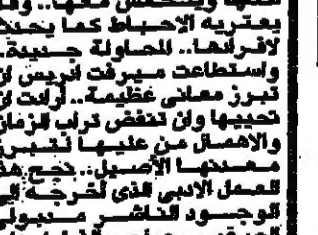 معها ويتحمس معها.. وقد
يعتريه الاحباط كما يحدث
لافرادها.. لمحاولة جديدة..
واستطاعت ميرفت ادريس ان
تبرز معانى عظيمة.. أرادت ان
تحييها وان تنفض تراب الزمان
والاهمال من عليها لتبرز
معدنها الأصيل.. نجح هذا
العمل الادبى الذى أخرجه الى
الوجود الناشر مدبولى